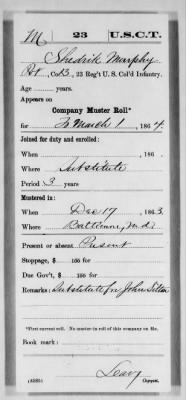 M 23 U.S.C.T.
Shedrik Murphy
Pvt, Co. B, 23 Reg't U. S. Col'd Infantry.
Age years.
Appears on
Company Muster Roll*
for To March 1, 1864.
Joined for duty and enrolled:
When , 186 .
Where Substitute
Period 3 years
Mustered in:
When Dec 17, 1863.
Where Baltimore, Md.
Present or absent Present
Stoppage, $ 100 for
Due Gov't, $ 100 for
Remarks: Substitute for John
*First current roll. No muster-in roll of this company on file.
Book mark:
Leavy
(358h) Copyist.